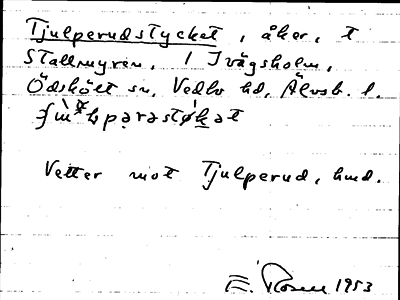 Tjulperudstycket, åker, t
Stallmyren, 1 Ivägsholm,
Ödskölt sn, Vedbo hd, Älvsb. l.

Vetter mot Tjulperud, hmd.
E. Rosen 1953